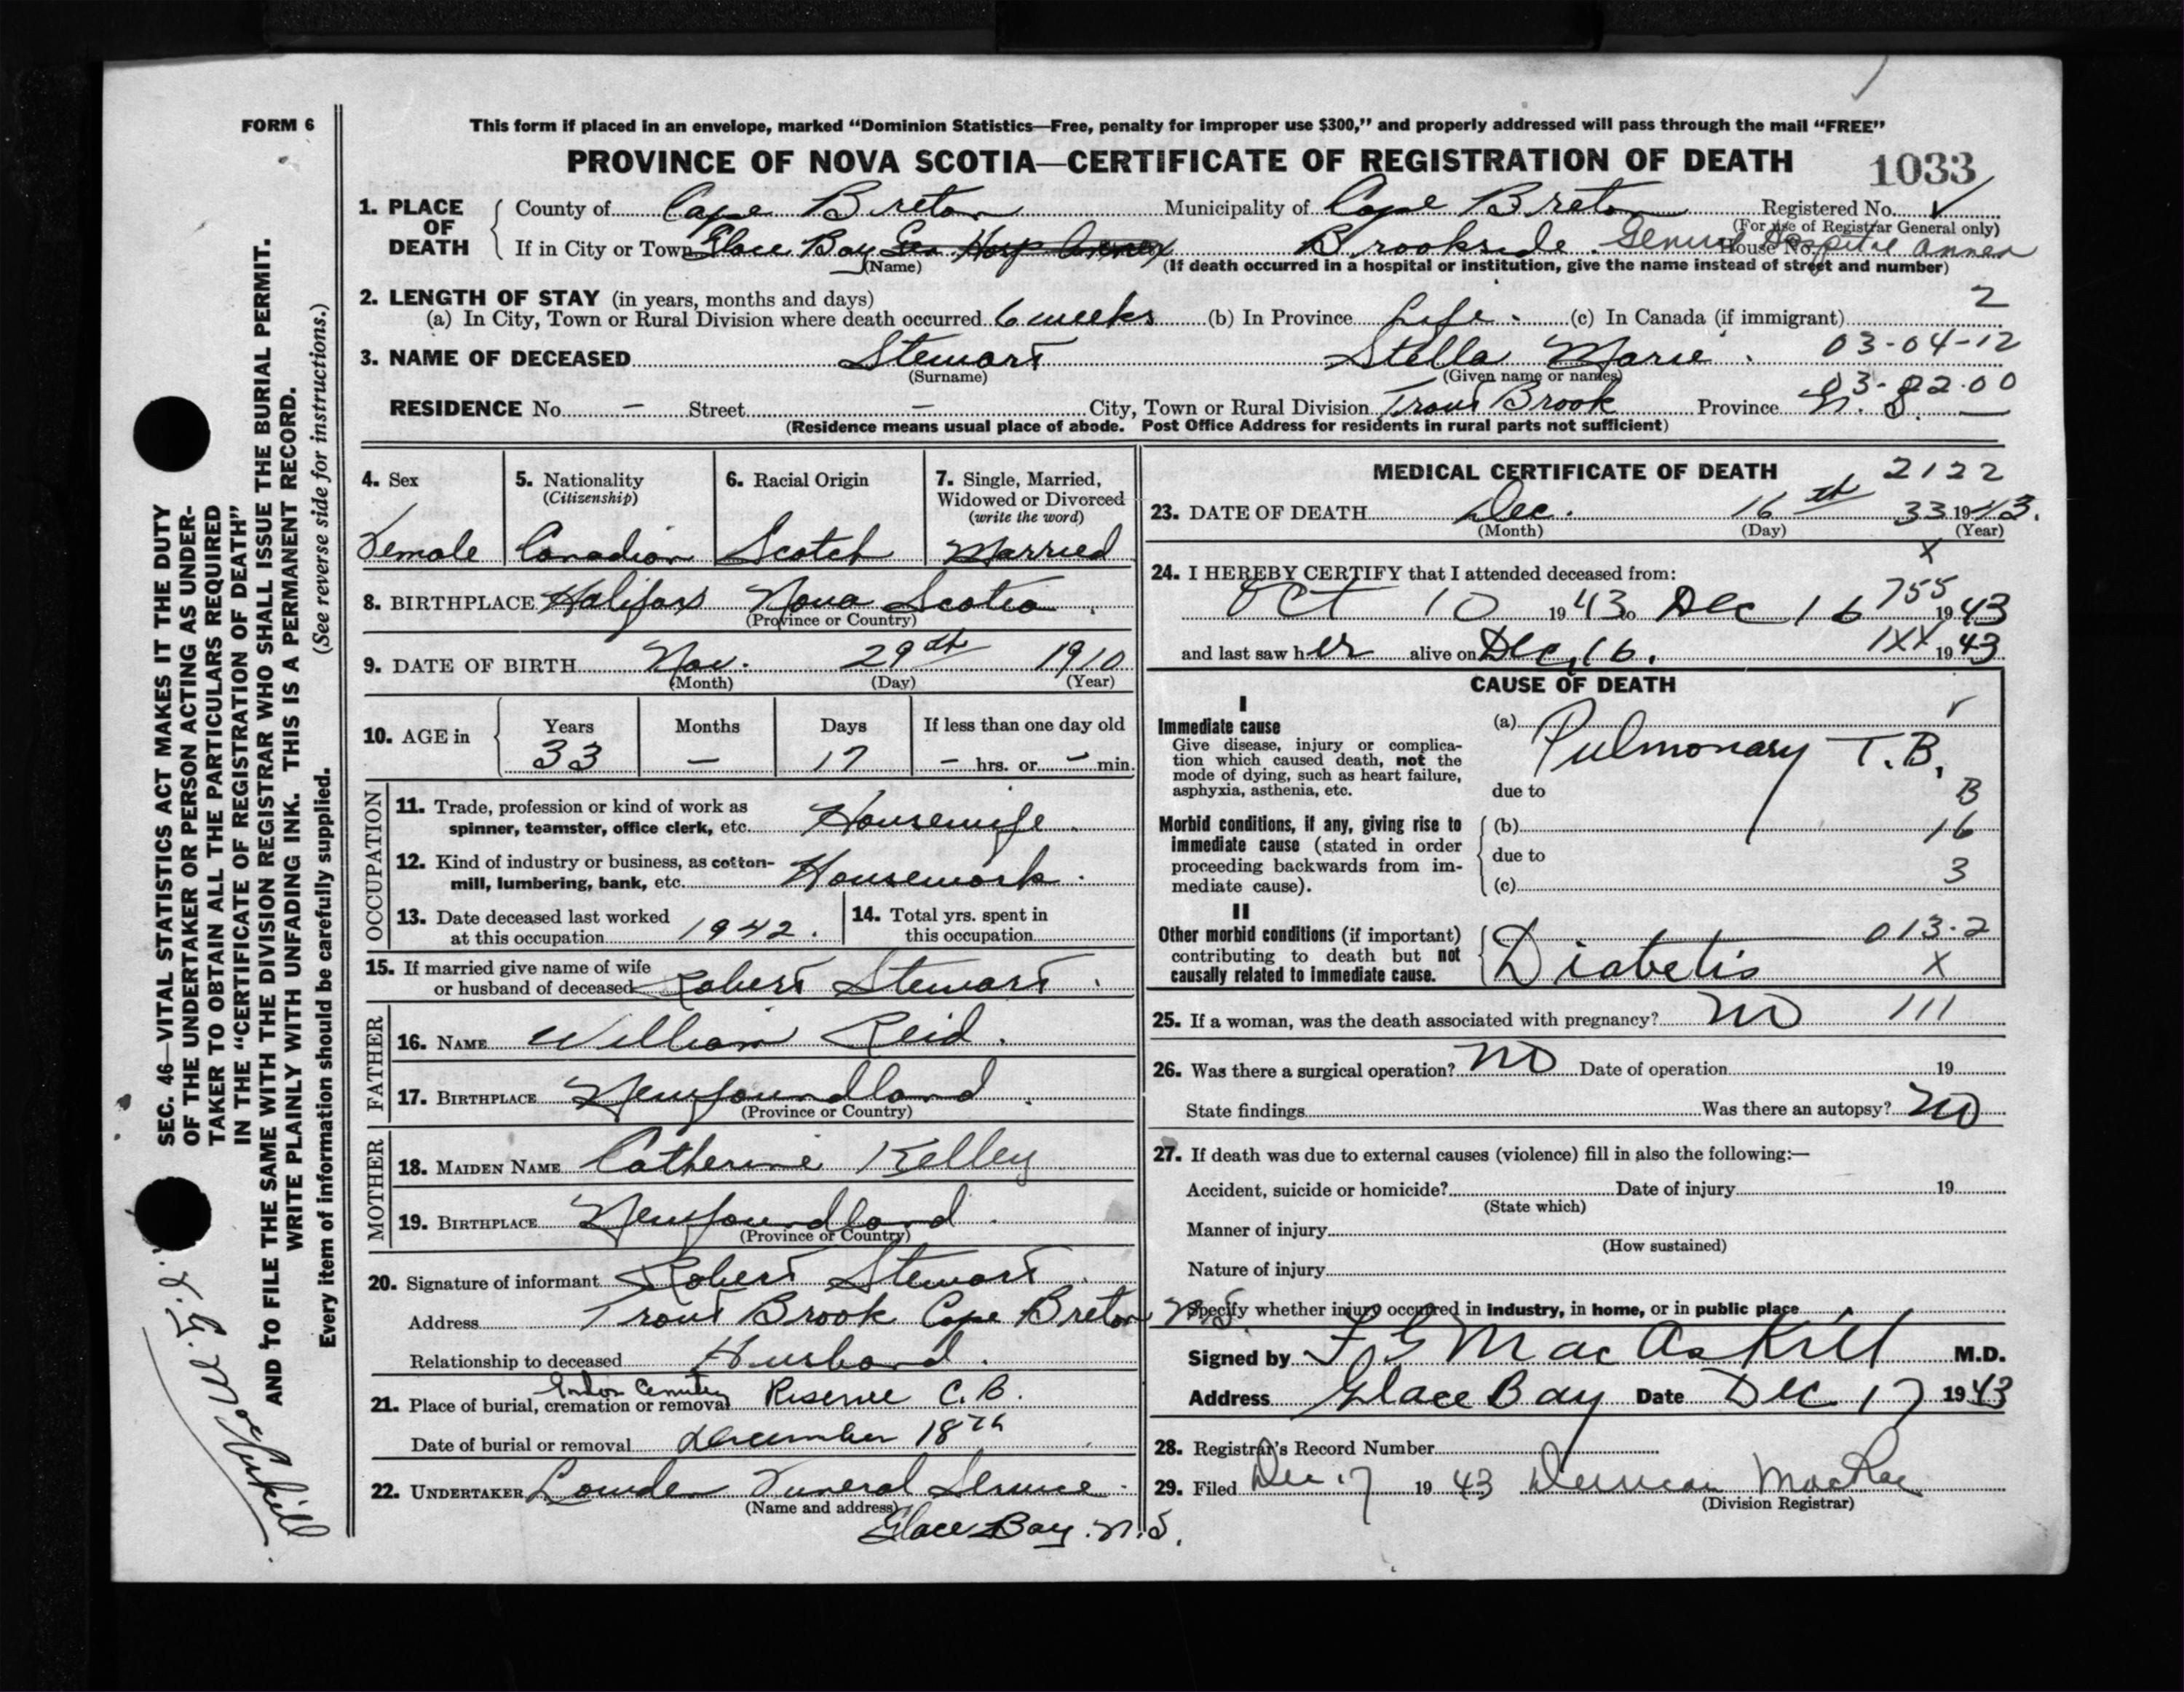 FORM 6
This form if placed in an envelope, marked “Dominion Statistics—Free, penalty for improper use $300,” and properly addressed will pass through the mail “FREE”
PROVINCE OF NOVA SCOTIA—CERTIFICATE OF REGISTRATION OF DEATH 1033
1. PLACE OF DEATH County of Cape Breton Municipality of Cape Breton Registered No.
(For use of Registrar General only)
If in City or Town Glace Bay Gen Hosp Annex Brookside. General Hospital Annex House No.
(Name) (If death occurred in a hospital or institution, give the name instead of street and number)
2. LENGTH OF STAY (in years, months and days) 2
(a) In City, Town or Rural Division where death occurred 6 weeks (b) In Province Life. (c) In Canada (if immigrant)
3. NAME OF DECEASED Stewart Stella Marie. 03-04-12
(Surname) (Given name or names)
03-82-00
RESIDENCE No. – Street – City, Town or Rural Division Trout Brook Province N. S. —
(Residence means usual place of abode. Post Office Address for residents in rural parts not sufficient)
4. Sex
Female
5. Nationality
(Citizenship)
Canadian
6. Racial Origin
Scotch
7. Single, Married,
Widowed or Divorced
(write the word)
Married
8. BIRTHPLACE Halifax Nova Scotia.
(Province or Country)
9. DATE OF BIRTH Nov. 29th 1910
(Month) (Day) (Year)
10. AGE in Years Months Days If less than one day old
33 – 17 – hrs. or – min.
OCCUPATION
11. Trade, profession or kind of work as
spinner, teamster, office clerk, etc. Housewife.
12. Kind of industry or business, as cotton-
mill, lumbering, bank, etc. Housework.
13. Date deceased last worked
at this occupation 1942.
14. Total yrs. spent in
this occupation
15. If married give name of wife
or husband of deceased Robert Stewart.
FATHER
16. NAME William Reid.
17. BIRTHPLACE Newfoundland.
(Province or Country)
MOTHER
18. MAIDEN NAME Catherine Kelley
19. BIRTHPLACE Newfoundland.
(Province or Country)
20. Signature of informant Robert Stewart.
Address Trout Brook Cape Breton N.S.
Relationship to deceased Husband.
21. Place of burial, cremation or removal Cemetery Reserve C.B.
Date of burial or removal December 18th
22. UNDERTAKER Lowden Funeral Service.
(Name and address)
Glace Bay. N.S.
MEDICAL CERTIFICATE OF DEATH 2122
23. DATE OF DEATH Dec. 16th 33 1943.
(Month) (Day) (Year)
X
24. I HEREBY CERTIFY that I attended deceased from:
Oct 10 1943 to Dec 16 755 1943
and last saw her alive on Dec, 16. 1XX 1943
CAUSE OF DEATH
I
Immediate cause
Give disease, injury or complica-
tion which caused death, not the
mode of dying, such as heart failure,
asphyxia, asthenia, etc.
(a) Pulmonary T.B.
due to B
Morbid conditions, if any, giving rise to
immediate cause (stated in order
proceeding backwards from im-
mediate cause).
(b) 16
due to
(c) 3
II
Other morbid conditions (if important)
contributing to death but not
causally related to immediate cause.
013-2
Diabetis X
25. If a woman, was the death associated with pregnancy? no 111
26. Was there a surgical operation? no Date of operation 19
State findings Was there an autopsy? no
27. If death was due to external causes (violence) fill in also the following:—
Accident, suicide or homicide? Date of injury 19
(State which)
Manner of injury
(How sustained)
Nature of injury
Specify whether injury occurred in industry, in home, or in public place
Signed by F G MacAskill M.D.
Address Glace Bay Date Dec 17 1943
28. Registrar's Record Number
29. Filed Dec 17 1943 Duncan MacRae
(Division Registrar)
SEC. 46—VITAL STATISTICS ACT MAKES IT THE DUTY
OF THE UNDERTAKER OR PERSON ACTING AS UNDER-
TAKER TO OBTAIN ALL THE PARTICULARS REQUIRED
IN THE “CERTIFICATE OF REGISTRATION OF DEATH”
AND TO FILE THE SAME WITH THE DIVISION REGISTRAR WHO SHALL ISSUE THE BURIAL PERMIT.
WRITE PLAINLY WITH UNFADING INK. THIS IS A PERMANENT RECORD.
(See reverse side for instructions.)
Every item of information should be carefully supplied.